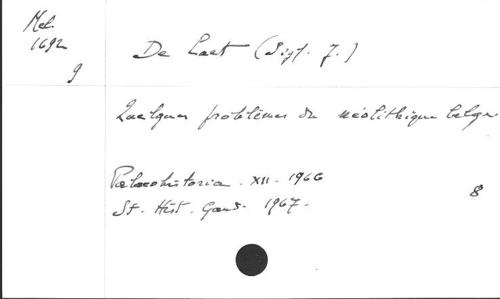 Mel.
1692
9
De Laet (Sigf. J.)
Quelques problèmes du néolithique belge
Palaeohistoria. XII. 1966
St. Hist. Gand. 1967.
8